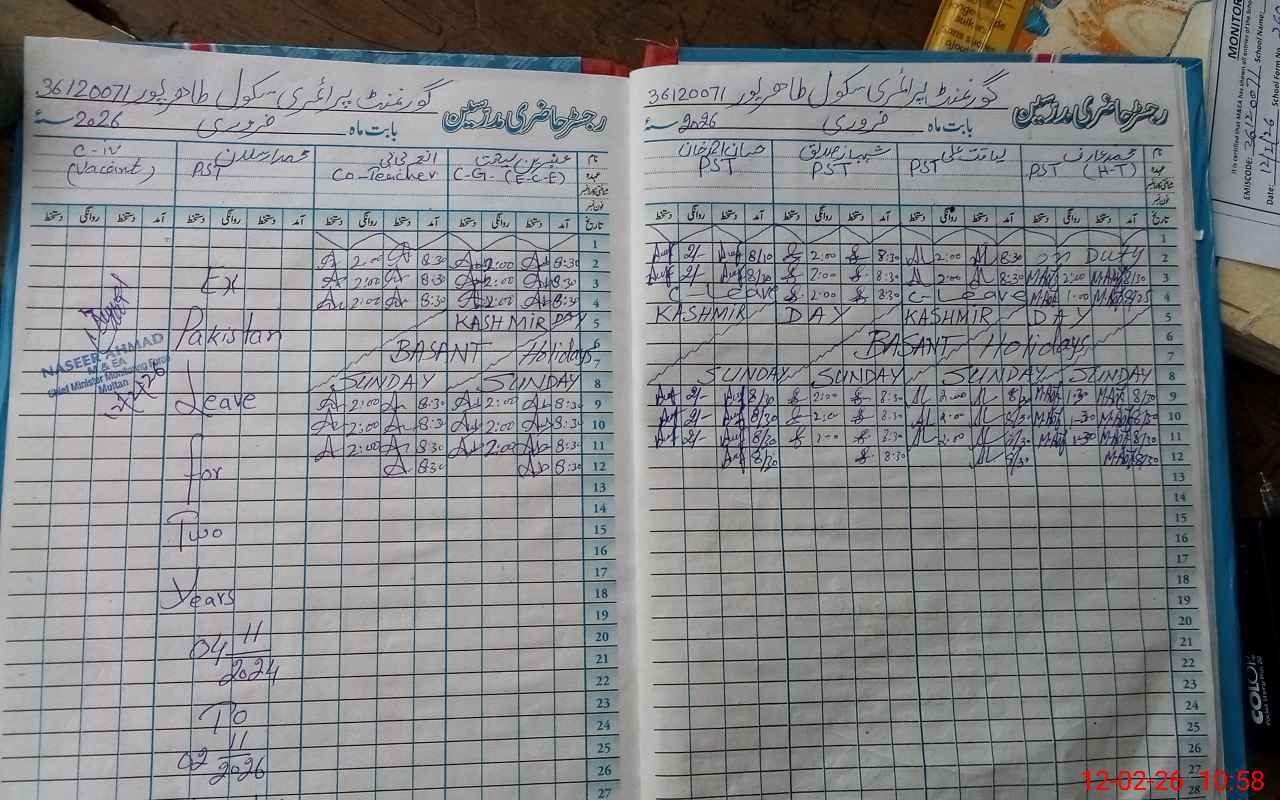 گورنمنٹ پرائمری سکول طاهر پور 36120071
رجسٹر حاضری مدرسین
بابت ماہ فروری 2026ء
C-IV
(Vacant)
محمد ارسلان
PST
Co-Teacher
عنبرین لیاقت
C-G- (E-C-E)
نام
عہدہ
تاریخ آمد دستخط روانگی دستخط آمد دستخط روانگی دستخط آمد دستخط روانگی دستخط آمد دستخط روانگی دستخط
1
2 8:30 2:00 8:30 2:00
3 8:30 2:00 8:30 2:00
4 8:30 2:00 8:30 2:00
5 KASHMIR DAY
6
7 BASANT Holidays
8 SUNDAY SUNDAY
9 8:30 2:00 8:30 2:00
10 8:30 2:00 8:30 2:00
11 8:30 2:00 8:30 2:00
12 8:30 8:30
13
14
15
16
17
18
19
20
21
22
23
24
25
26
27
Ex
Pakistan
Leave
for
Two
Years
04 11/2024
To
02 11/2026
NASEER AHMAD
M & EA
Chief Minister Monitoring Force
Multan
گورنمنٹ پرائمری سکول طاهر پور 36120071
رجسٹر حاضری مدرسین
بابت ماہ فروری 2026ء
حسان اظہر خان
PST
شہباز صدیق
PST
لیاقت علی
PST
محمد عارف
PST (H-T)
نام
عہدہ
تاریخ آمد دستخط روانگی دستخط آمد دستخط روانگی دستخط آمد دستخط روانگی دستخط آمد دستخط روانگی دستخط
1
2/- 8/10 2:00 8:30 2:00 8:30 on DUTY 2
2/- 8/30 2:00 8:30 2:00 8:30 2:00 8/30 3
C-Leave 2:00 8:30 C-Leave 1:00 8/25 4
KASHMIR DAY KASHMIR DAY 5
6
BASANT Holidays 7
SUNDAY SUNDAY SUNDAY SUNDAY 8
2/- 8/30 2:00 8:30 2:00 8/30 1:30 8/30 9
2/- 8/30 2:00 8:30 2:00 8/30 1:30 8/30 10
2/- 8/30 2:00 8:30 2:00 8/30 1:30 8/30 11
8/30 8:30 8/30 8/30 12
13
14
15
16
17
18
19
20
21
22
23
24
25
26
27
28
MONITOR
EMISCODE: 36120071 School Name:
Date: 12/1/26
COLOP
12-02-26 10:58